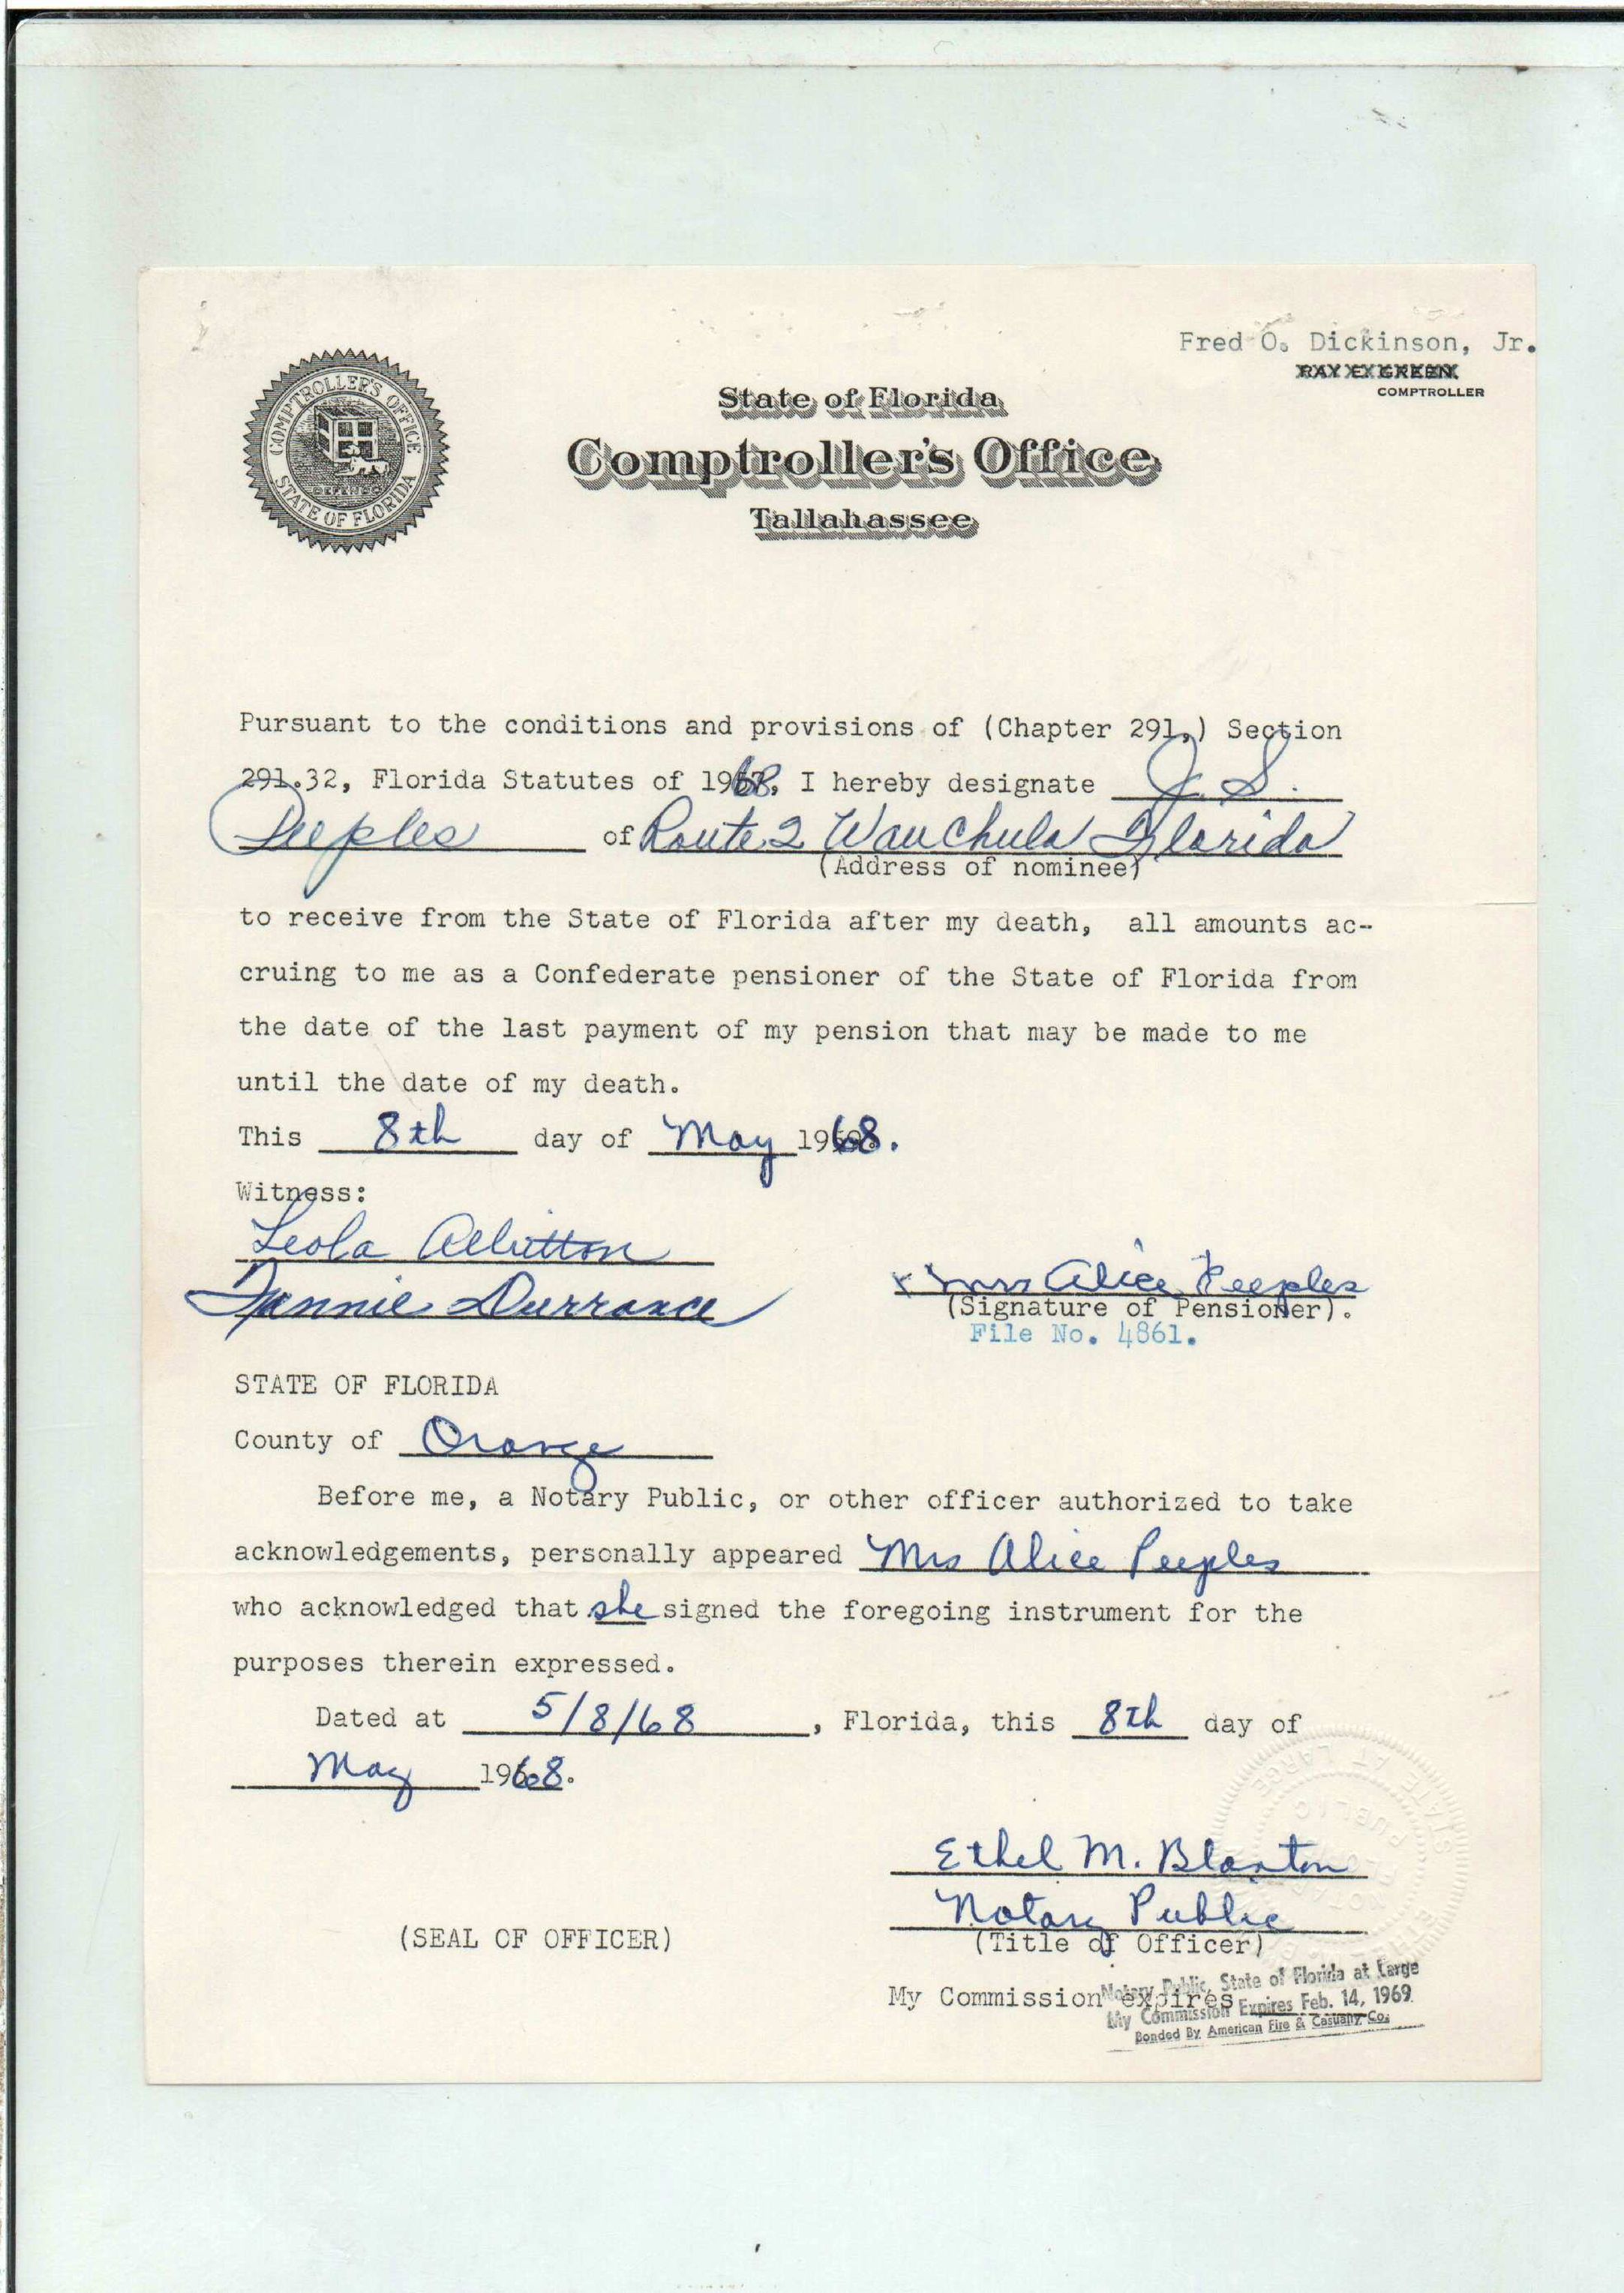 Fred O. Dickinson, Jr.
RAY E. GREEN
COMPTROLLER
COMPTROLLER'S OFFICE
STATE OF FLORIDA
State of Florida
Comptroller's Office
Tallahassee
Pursuant to the conditions and provisions of (Chapter 291,) Section
291.32, Florida Statutes of 1968, I hereby designate J. S.
Peeples of Route 2 Wauchula Florida
(Address of nominee)
to receive from the State of Florida after my death, all amounts ac-
cruing to me as a Confederate pensioner of the State of Florida from
the date of the last payment of my pension that may be made to me
until the date of my death.
This 8th day of May 1968.
Witness:
Leola Albritton
Fannie Durrance
x Mrs Alice Peeples
(Signature of Pensioner).
File No. 4861.
STATE OF FLORIDA
County of Orange
Before me, a Notary Public, or other officer authorized to take
acknowledgements, personally appeared Mrs Alice Peeples
who acknowledged that she signed the foregoing instrument for the
purposes therein expressed.
Dated at 5/8/68, Florida, this 8th day of
May 1968.
Ethel M. Blanton
Notary Public
(SEAL OF OFFICER)
(Title of Officer)
My Commission expires
Notary Public, State of Florida at Large
My Commission Expires Feb. 14, 1969
Bonded By American Fire & Casualty Co.